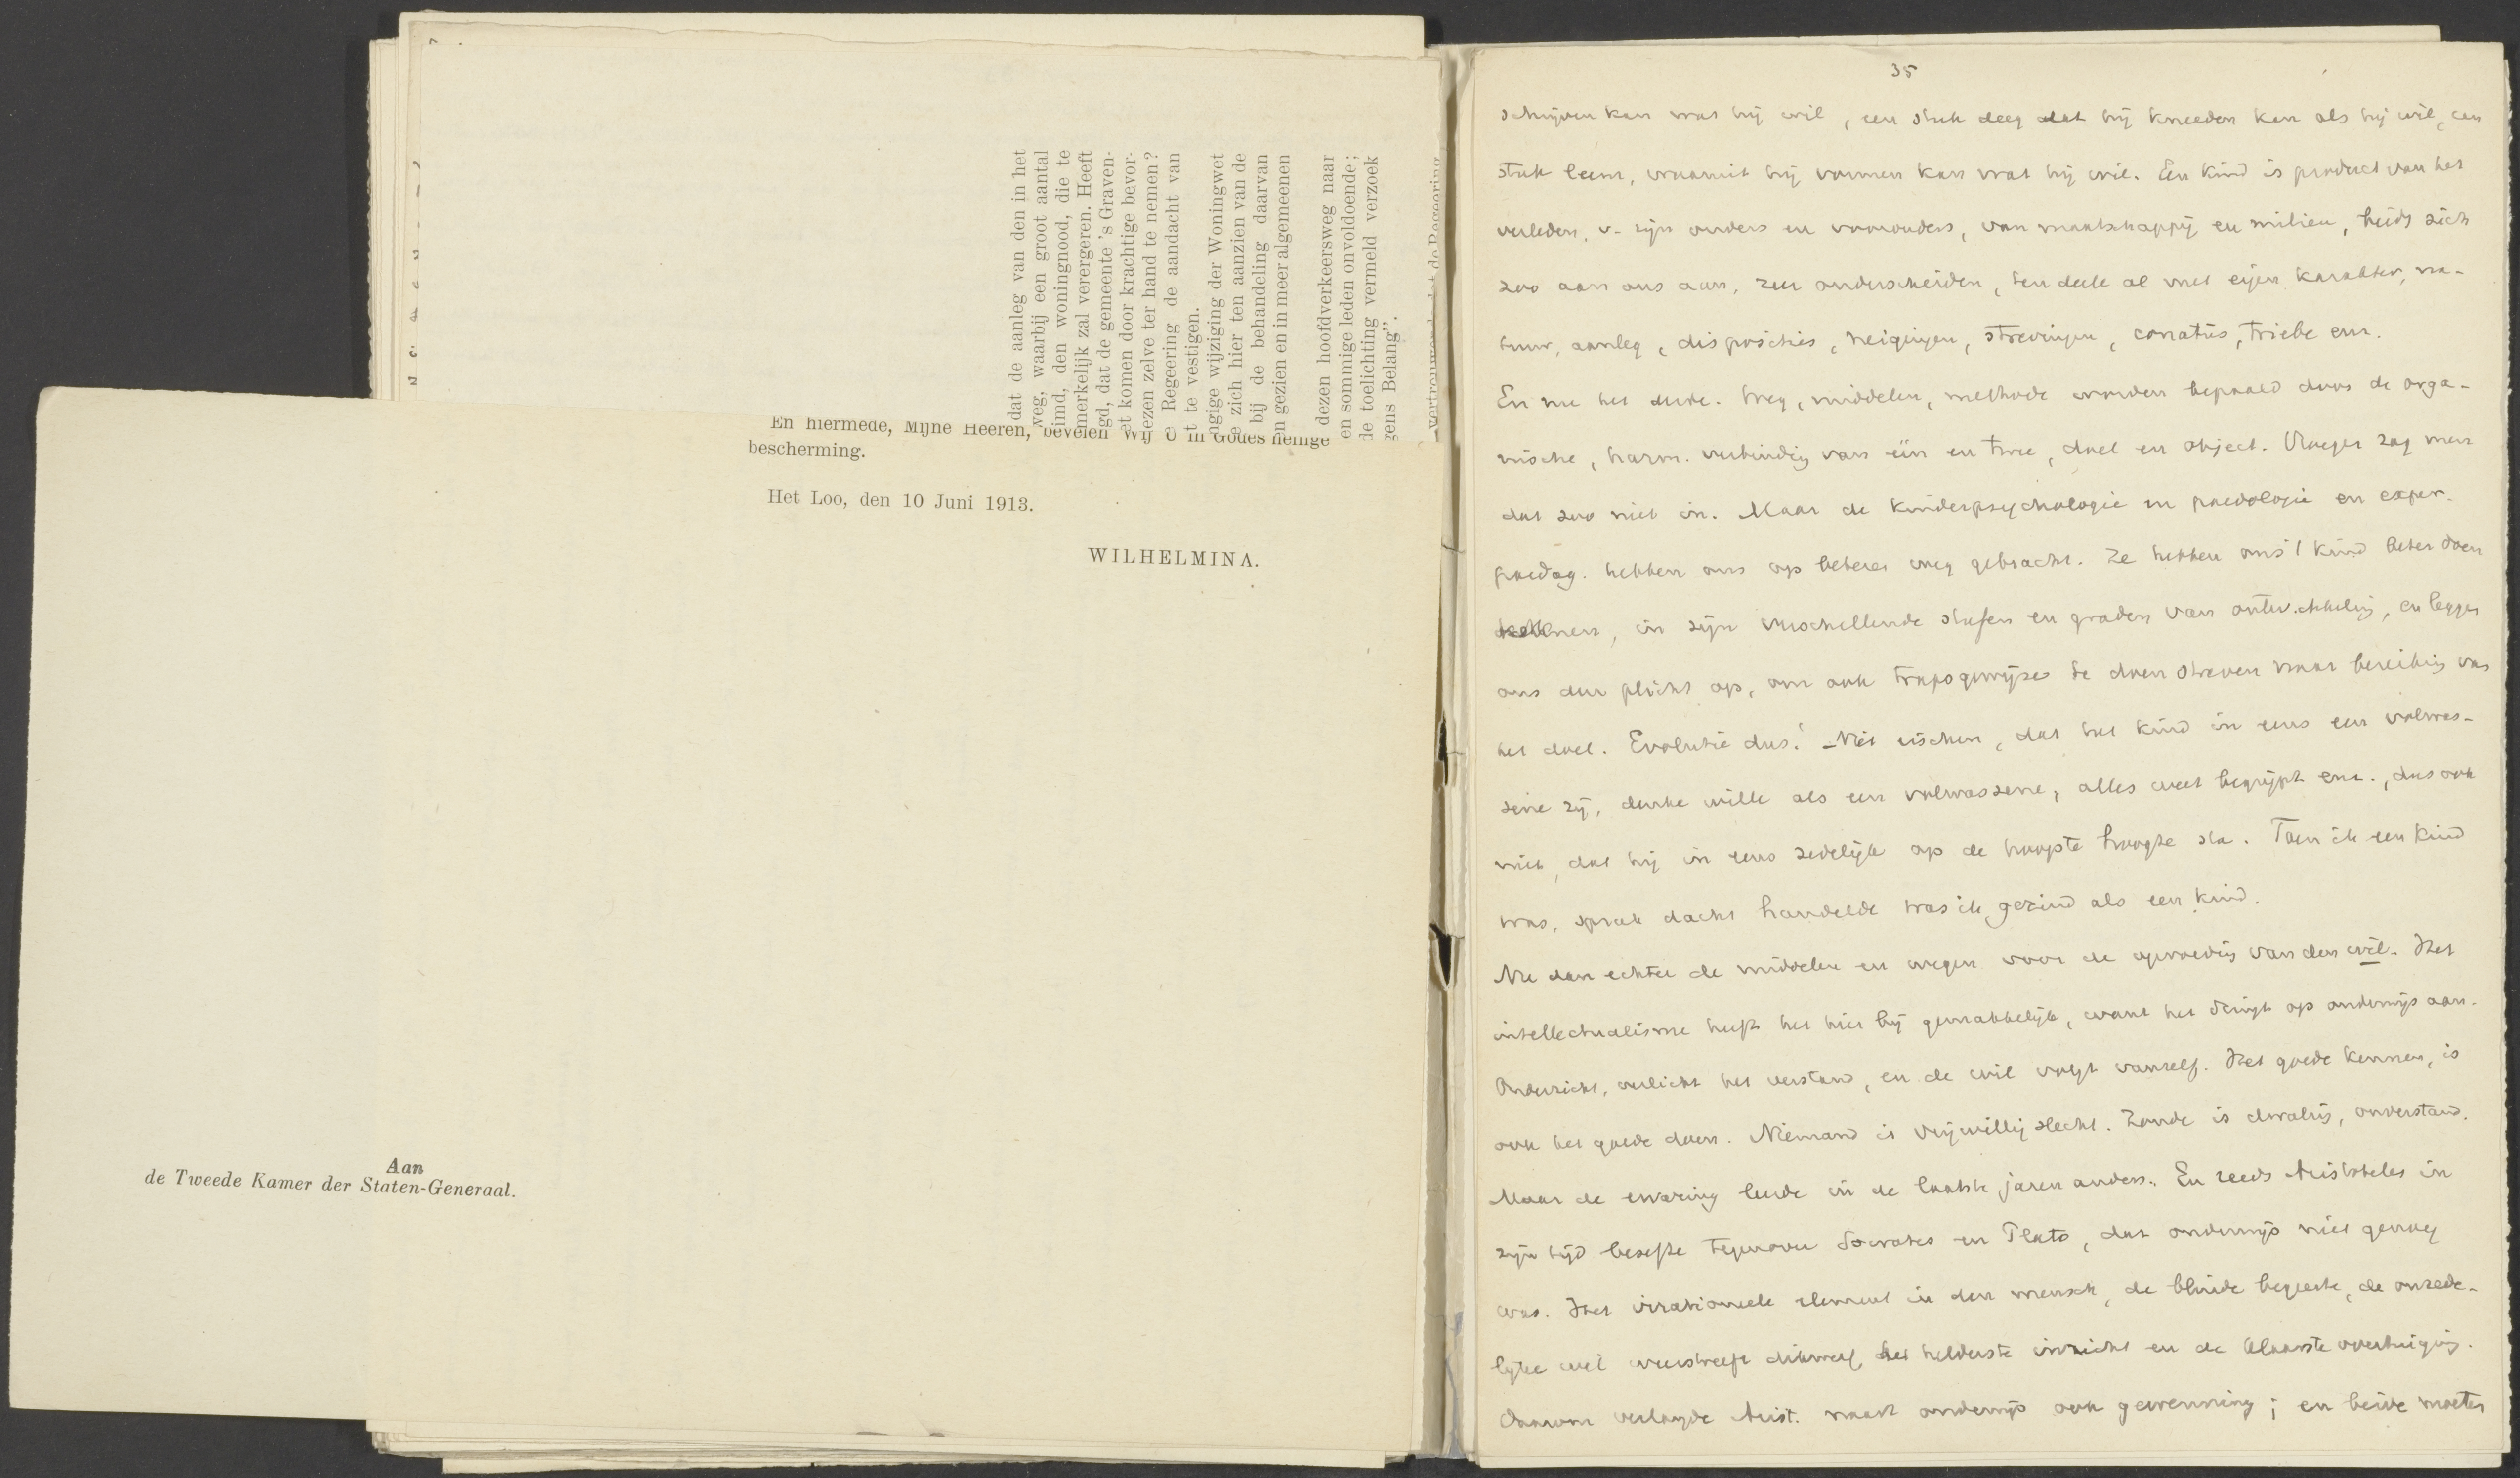 dat de aanleg van den in het
weg, waarbij een groot aantal
ind, den woningnood, die te
merkelijk zal verergeren. Heeft
gd, dat de gemeente 's Graven-
et komen door krachtige bevor-
ezen zelve ter hand te nemen?
e Regeering de aandacht van
t te vestigen.
ngige wijziging der Woningwet
e zich hier ten aanzien van de
bij de behandeling daarvan
en gezien en in meer algemeenen
dezen hoofdverkeersweg naar
en sommige leden onvoldoende;
de toelichting vermeld verzoek
gens Belang".
vertrouwen dat de Regeering
En hiermede, Mijne Heeren, bevelen Wij U in Godes heilige
bescherming.
Het Loo, den 10 Juni 1913.
WILHELMINA.
Aan
de Tweede Kamer der Staten-Generaal.
35
schrijven kan wat hij wil, een stuk deeg dat hij kneeden kan als hij wil, een
stuk leem, waaruit hij vormen kan wat hij wil. Een kind is product van het
verleden, v. zijn ouders en voorouders, van maatschappij en milieu, biedt zich
zoo aan ons aan, zeer onderscheiden, ten deele al met eigen karakter, na-
tuur, aanleg, disposities, neigingen, strevingen, conatus, Triebe enz.
En nu het derde. Weg, middelen, methode worden bepaald door de orga-
nische, harm. verbinding van één en twee, doel en object. Vroeger zag men
dat zoo niet in. Maar de kinderpsychologie en paedologie en exper.
paedag. hebben ons op beteren weg gebracht. Ze hebben ons 't kind beter doen
kennen, in zijn verschillende stufen en graden van ontwikkeling, en leggen
ons den plicht op, om ook trapsgewijze te doen streven naar bereiking van
het doel. Evolutie dus! - Niet eischen, dat het kind in eens een volwas-
sene zij, denke wille als een volwassene, alles weet begrijpt enz., dus ook
niet, dat hij in eens zedelijk op de hoogste hoogte sta. Toen ik een kind
was, sprak dacht handelde was ik gezind als een kind.
Nu dan echter de middelen en wegen voor de opvoeding van den wil. Het
intellectualisme heeft het hier bij gemakkelijk, want het dringt op onderwijs aan.
Onderricht, verlicht het verstand, en de wil volgt vanzelf. Het goede kennen, is
ook het goede doen. Niemand is vrijwillig slecht. Zonde is dwaling, onverstand.
Maar de ervaring leerde in de laatste jaren anders. En reeds Aristoteles in
zijn tijd besefte tegenover Socrates en Plato, dat onderwijs niet genoeg
was. Het irrationeele element in den mensch, de blinde begeerte, de onzede-
lijke wil weerstreeft dikwerf het helderste inzicht en de klaarste overtuiging.
Daarom verlangde Arist. naast onderwijs ook gewenning; en beide moeten